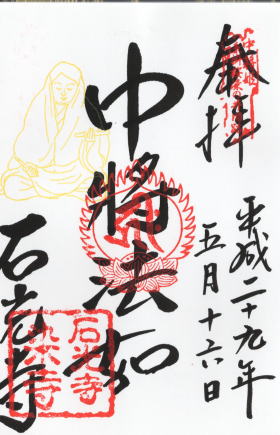 奉拝
平成二十九年
五月十六日
中将法如
石光寺
石光寺
染寺